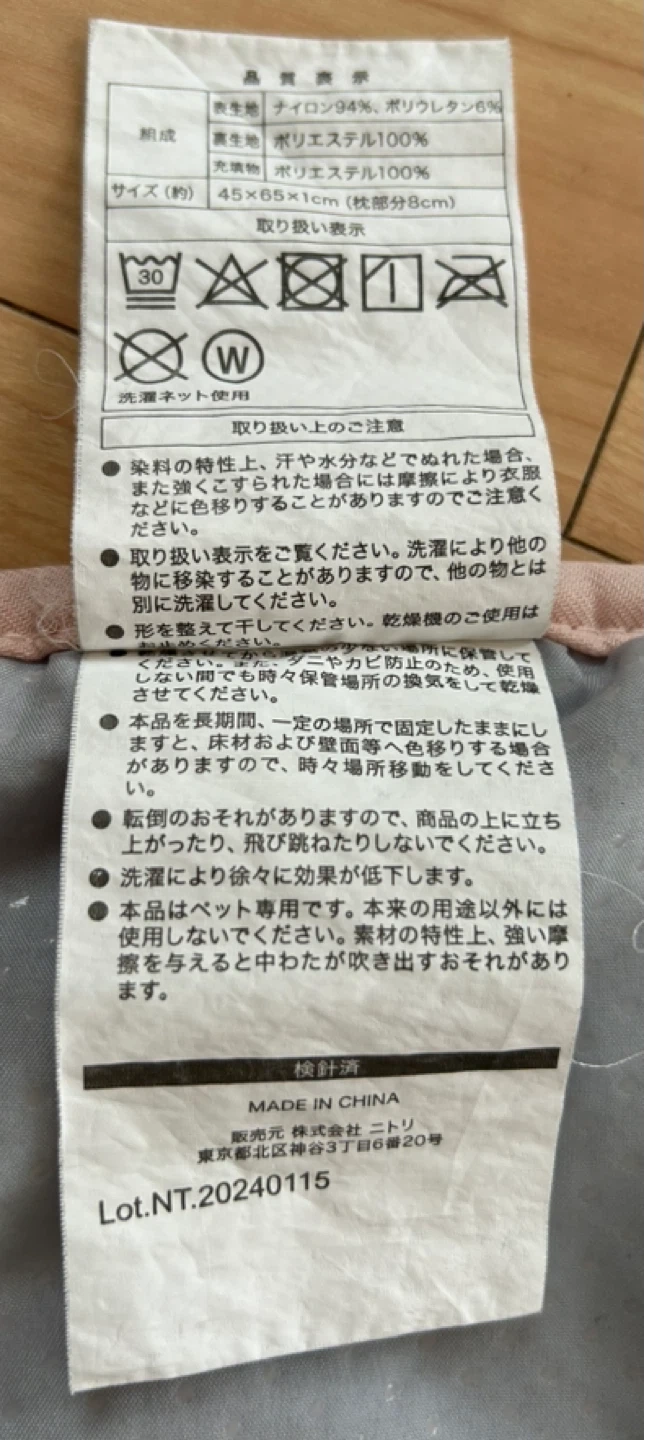 品質表示
組成
表生地 ナイロン94%、ポリウレタン6%
裏生地 ポリエステル100%
充填物 ポリエステル100%
サイズ（約） 45×65×1cm（枕部分8cm）
取り扱い表示
30
W
洗濯ネット使用
取り扱い上のご注意
● 染料の特性上、汗や水分などでぬれた場合、
また強くこすられた場合には摩擦により衣服
などに色移りすることがありますのでご注意く
ださい。
● 取り扱い表示をご覧ください。洗濯により他の
物に移染することがありますので、他の物とは
別に洗濯してください。
● 形を整えて干してください。乾燥機のご使用は
ない場所に保管して
ください。また、ダニやカビ防止のため、使用
しない間でも時々保管場所の換気をして乾燥
させてください。
● 本品を長期間、一定の場所で固定したままにし
ますと、床材および壁面等へ色移りする場合
がありますので、時々場所移動をしてくださ
い。
● 転倒のおそれがありますので、商品の上に立ち
上がったり、飛び跳ねたりしないでください。
● 洗濯により徐々に効果が低下します。
● 本品はペット専用です。本来の用途以外には
使用しないでください。素材の特性上、強い摩
擦を与えると中わたが吹き出すおそれがあり
ます。
検針済
MADE IN CHINA
販売元 株式会社 ニトリ
東京都北区神谷3丁目6番20号
Lot.NT.20240115